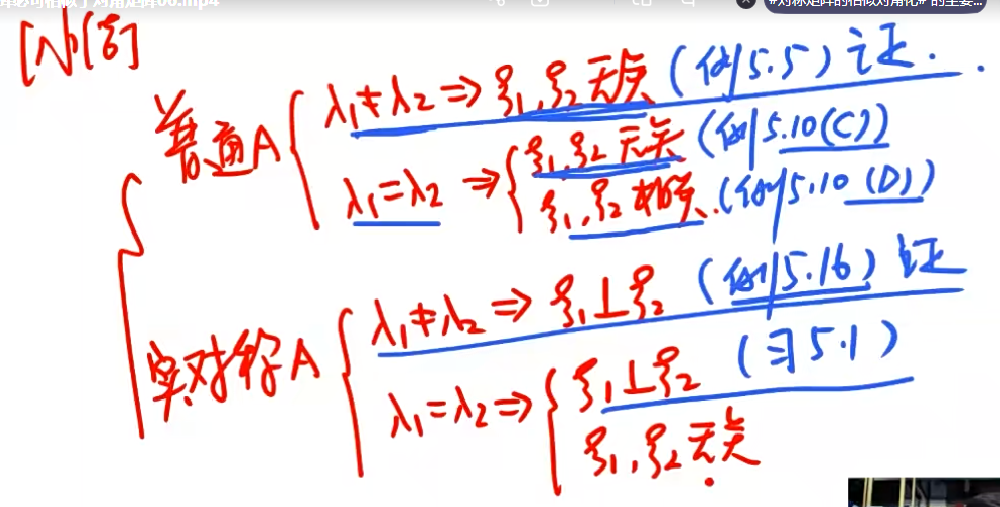 #对称矩阵的相似对角化# 的主要...
[小结]
普通A
λ₁≠λ₂ ⇒ ξ₁,ξ₂ 无关 (例5.5) 证.
λ₁=λ₂ ⇒
ξ₁,ξ₂ 无关 (例5.10(C))
ξ₁,ξ₂ 相关. (例5.10 (D))
实对称A
λ₁≠λ₂ ⇒ ξ₁⊥ξ₂ (例5.16) 证
λ₁=λ₂ ⇒
ξ₁⊥ξ₂ (习5.1)
ξ₁,ξ₂ 无关